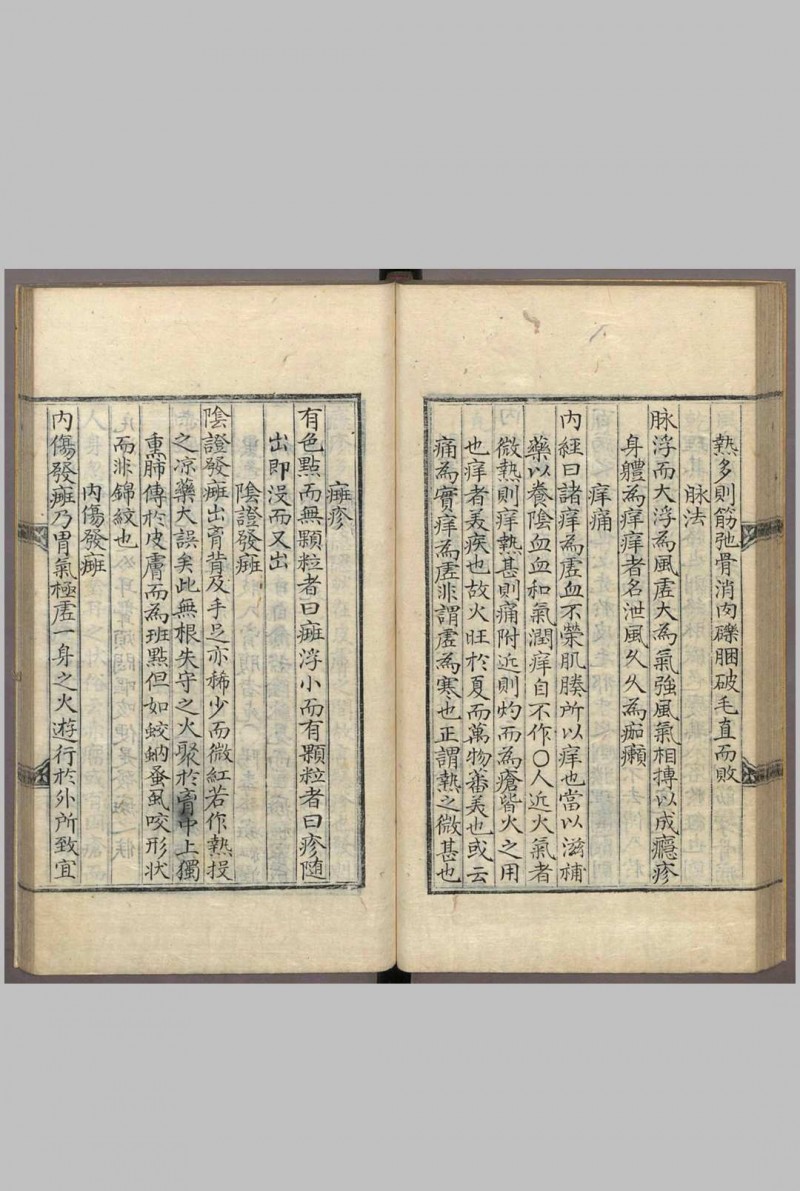 熱多則筋弛骨消肉礫䐃破毛直而敗
脉法
脉浮而大浮為風虛大為氣強風氣相摶以成癮疹
身軆為痒痒者名泄風久久為痂癩
痒痛
內經曰諸痒為虛血不榮肌腠所以痒也當以滋補
藥以養陰血血和氣潤痒自不作○人近火氣者
微熱則痒熱甚則痛附近則灼而為瘡皆火之用
也痒者美疾也故火旺於夏而萬物蕃美也或云
痛為實痒為虛非謂虛為寒也正謂熱之微甚也
癍疹
有色點而無顆粒者曰癍浮小而有顆粒者曰疹隨
出即沒而又出
陰證發癍
陰證發癍出胷背及手足亦稀少而微紅若作熱投
之凉藥大誤矣此無根失守之火聚於胷中上獨
熏肺傳於皮膚而為班點但如蚊蚋蚤虱咬形狀
而非錦紋也
內傷發癍
內傷發癍乃胃氣極虛一身之火遊行於外所致宜